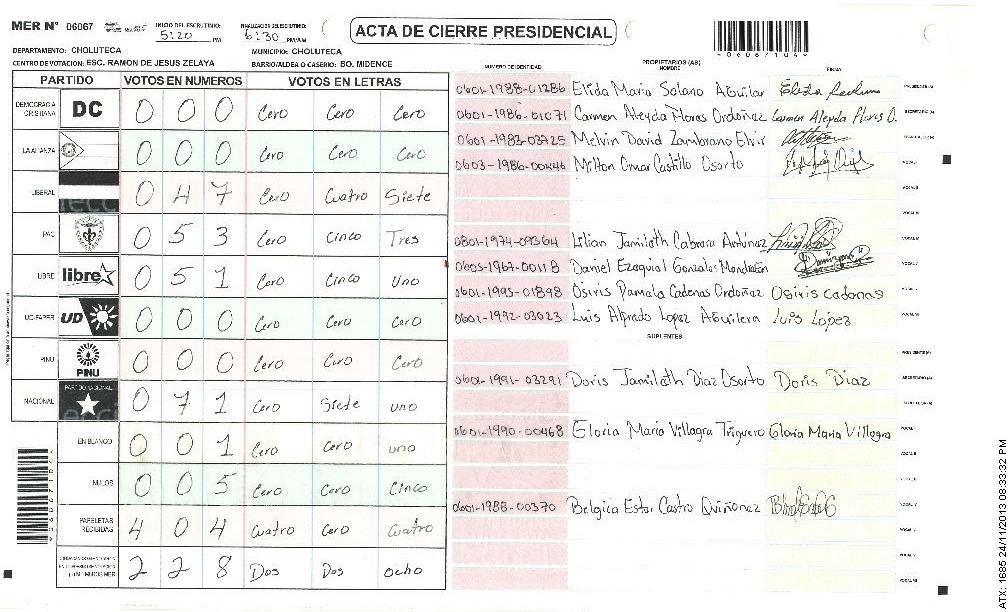 MER N° 06067 INICIO DEL ESCRUTINIO: 5:20 PM FINALIZACION DEL ESCRUTINIO: 6:30 PM/AM
ACTA DE CIERRE PRESIDENCIAL
DEPARTAMENTO: CHOLUTECA MUNICIPIO: CHOLUTECA
CENTRO DE VOTACION: ESC. RAMON DE JESUS ZELAYA BARRIO/ALDEA O CASERIO: BO. MIDENCE
PARTIDO VOTOS EN NUMEROS VOTOS EN LETRAS
DEMOCRACIA CRISTIANA DC 0 0 0 Cero Cero Cero
LA ALIANZA 0 0 0 Cero Cero Cero
LIBERAL 0 4 7 Cero Cuatro Siete
PAC 0 5 3 Cero Cinco Tres
LIBRE libre 0 5 1 Cero Cinco Uno
UD-FAPER UD 0 0 0 Cero Cero Cero
PINU PINU 0 0 0 Cero Cero Cero
NACIONAL PARTIDO NACIONAL 0 7 1 Cero Siete uno
EN BLANCO 0 0 1 Cero Cero uno
NULOS 0 0 5 Cero Cero Cinco
PAPELETAS RECIBIDAS 4 0 4 Cuatro Cero Cuatro
2 2 8 Dos Dos ocho
NUMERO DE IDENTIDAD PROPIETARIOS (AS) FIRMA
0601-1988-01286 Elida Maria Solano Aguilar
0601-1986-01071 Carmen Aleyda Flores Ordoñez Carmen Aleyda Flores O.
0601-1983-03725 Melvin David Zambrano Elvir
0603-1986-00446 Milton Omar Castillo Osorto
0801-1974-09364 Lilian Jamilath Cabrera Antúnez
0605-1967-00118 Daniel Ezequial Gonzales Mondragón
0601-1995-01898 Osiris Pamela Cadenas Ordoñez Osiris cadenas
0601-1992-03023 Luis Alfredo Lopez Aguilera Luis Lopez
SUPLENTES
0601-1991-03291 Doris Jamilath Diaz Osorto Doris Diaz
0601-1990-00468 Gloria Maria Villagra Triguero Gloria Maria Villagra
0601-1988-00370 Belgica Ester Castro Quiñonez
ATX: 1685 24/11/2013 08:33:32 PM